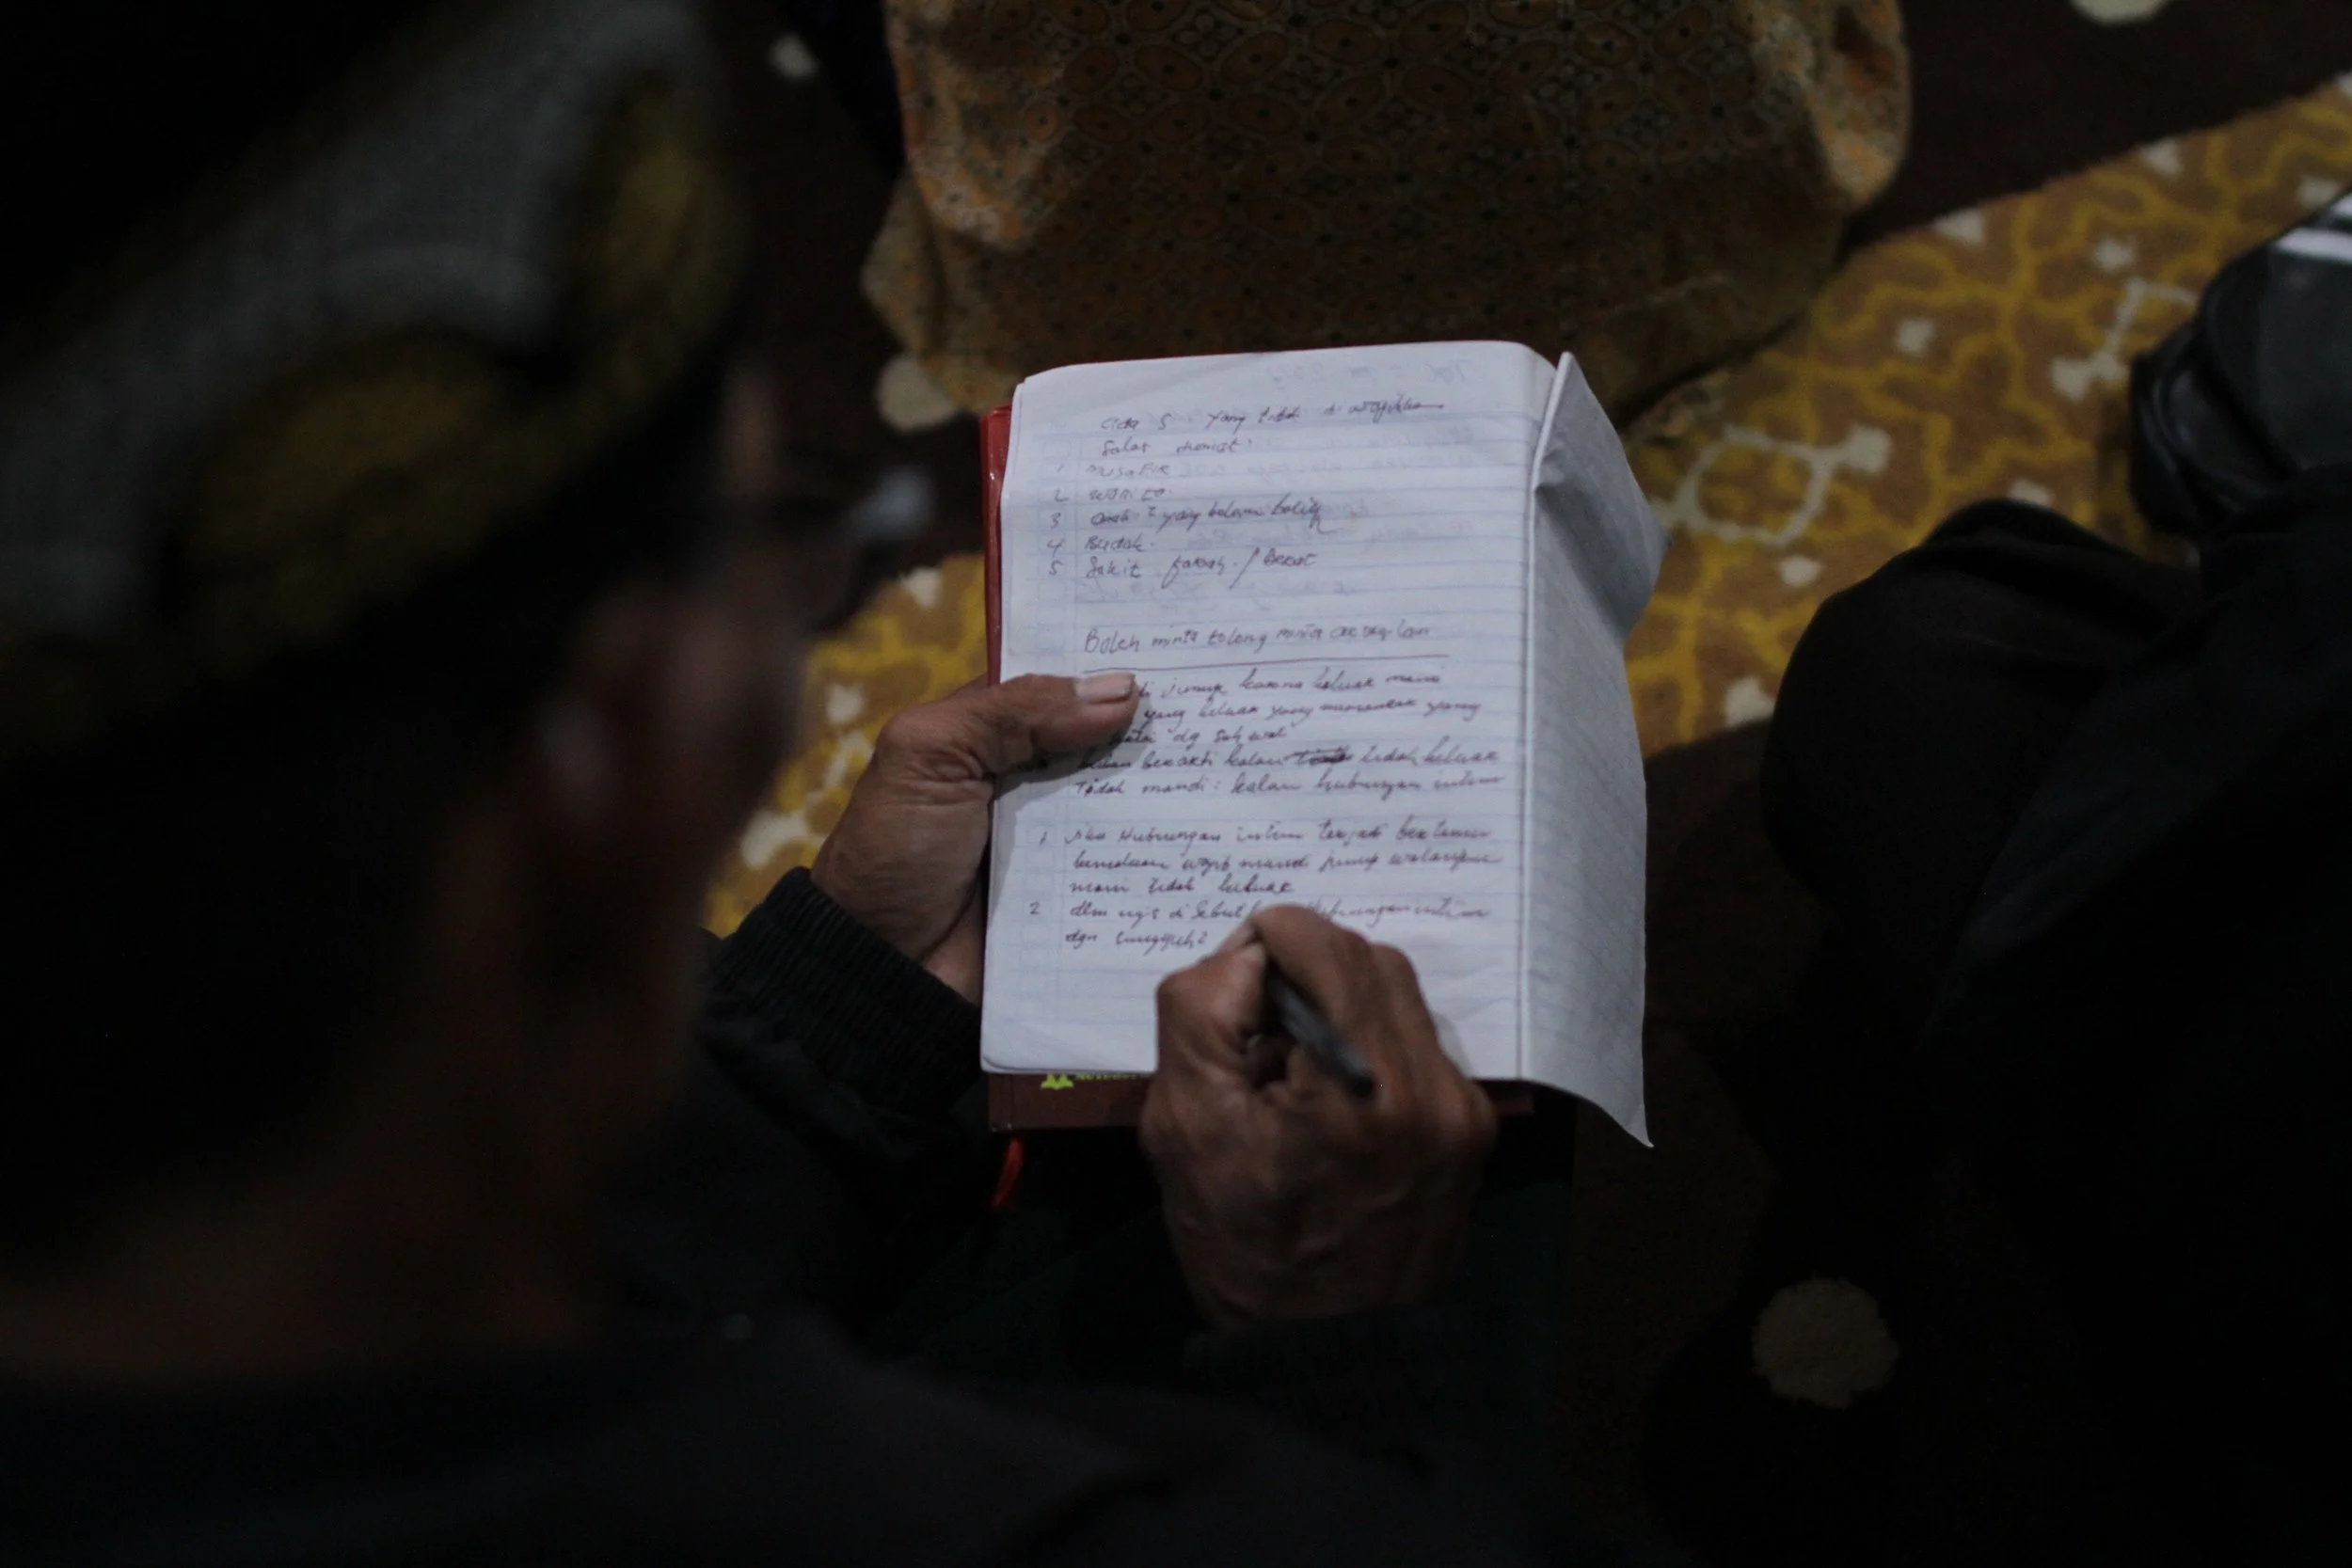 ada 5 yang tidak di wajibkan
Salat Jumat.
1 musafir
2 wanita.
3 anak2 yang belum balig
4 Budak.
5 Sakit parah / Berat
Boleh minta tolong minta
di junup karena keluar mani
yang keluar yang yang
dg sahwat
berarti kalau tidak keluar
Tidak mandi: kalau hubungan intim
1 Jika Hubungan intim terjadi bertemu
kemaluan wajib mandi junup walaupun
mani tidak keluar
2 dlm di sebut Hubungan intim
dgn